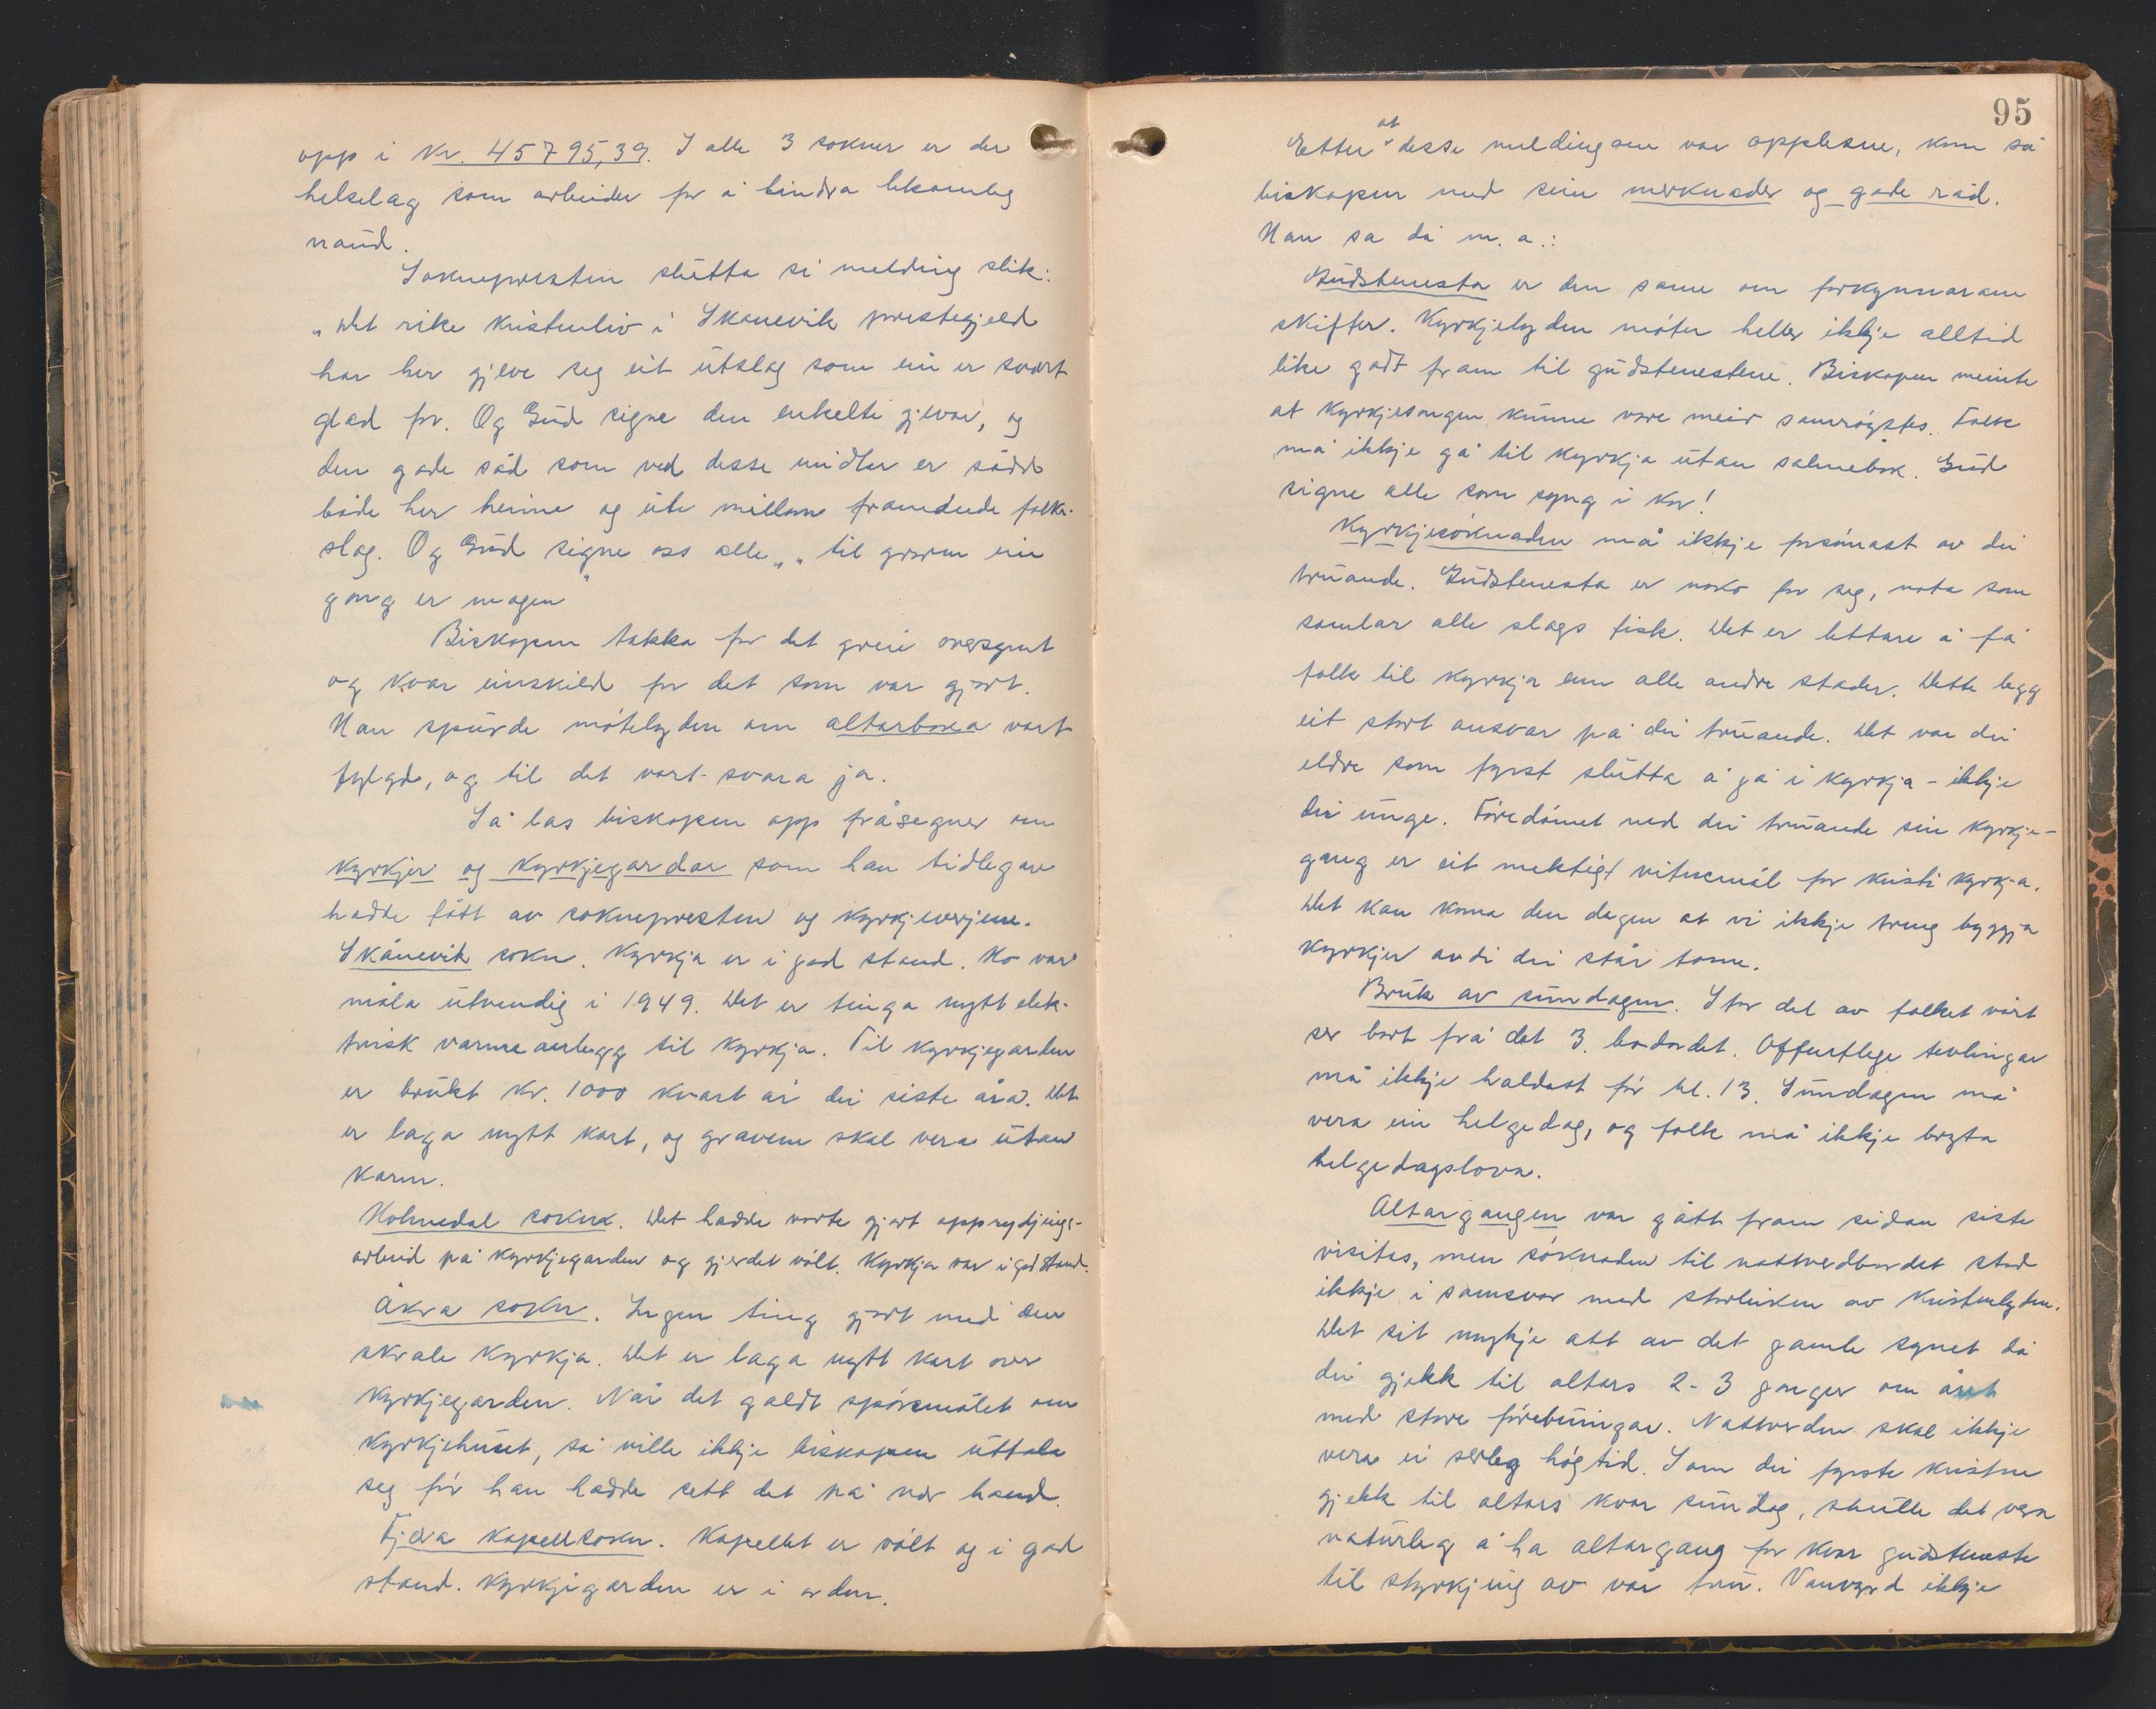 opp i kr. 45795,39. I alle 3 sokner er der
helselag som arbeider for å lindra lekamleg
naud.
Soknepresten slutta si melding slik:
„Det rike kristenliv i Skånevik prestegjeld
har her gjeve seg eit utslag som ein er svært
glad for. Og Gud signe den enkelte gjevar, og
den gode såd som ved desse midlar er sådd
både her heime og ute millom framande folke-
slag. Og Gud signe oss alle „ „ til grøren ein
gong er mogen"
Biskopen takka for det greie oversynet
og kvar einskild for det som var gjort.
Han spurde møtelyden om altarboka vart
fylgd, og til det vart svara ja.
Så las biskopen opp fråsegner om
kyrkjer og kyrkjegardar som han tidlegare
hadde fått av soknepresten og kyrkjeverjene.
Skånevik sokn. Kyrkja er i god stand. Ho var
måla utvendig i 1949. Det er tinga nytt elek-
trisk varmeanlegg til kyrkja. Til kyrkjegarden
er brukt kr. 1000 kvart år dei siste åra. Det
er laga nytt kart, og gravene skal vera utan
karm.
Holmedal sokn. Det hadde vorte gjort opprydjings-
arbeid på kyrkjegarden og gjerdet vølt. Kyrkja var i god stand.
Åkra sokn. Ingen ting gjort med den
skrale kyrkja. Det er laga nytt kart over
kyrkjegarden. Når det galdt spørsmålet om
kyrkjehuset, så ville ikkje biskopen uttala
seg før han hadde sett det på nær hand.
Fjæra kapellsokn. Kapellet er vølt og i god
stand. Kyrkjegarden er i orden.
95
Etter at desse meldingane var opplesne, kom så
biskopen med sine merknader og gode råd.
Han sa då m.a.:
Gudstenesta er den same om forkynnarane
skifter. Kyrkjelyden møter heller ikkje alltid
like godt fram til gudstenestene. Biskopen meinte
at kyrkjesongen kunne vore meir samrøystes. Folk
må ikkje gå til kyrkja utan salmebok. Gud
signe alle som syng i kor!
Kyrkjesøknaden må ikkje forsømast av dei
truande. Gudstenesta er noko for seg, nota som
samlar alle slags fisk. Det er lettare å få
folk til kyrkja enn alle andre stader. Dette legg
eit stort ansvar på dei truande. Det var dei
eldre som fyrst slutta å gå i kyrkja - ikkje
dei unge. Føredømet med dei truande sin kyrkje-
gang er eit mektigt vitnemål for Kristi kyrkja.
Det kan koma den dagen at vi ikkje treng byggja
kyrkjer avdi dei står tome.
Bruk av sundagen. Stor del av folket vårt
ser bort frå det 3. bodordet. Offentlege tevlingar
må ikkje haldast før kl. 13. Sundagen må
vera ein helgedag, og folk må ikkje bryta
helgedagslova.
Altargangen var gått fram sidan siste
visitas, men søknaden til nattverdbordet stod
ikkje i samsvar med storleiken av kristenlyden.
Det sit mykje att av det gamle synet då
dei gjekk til altars 2-3 gonger om året
med store førebuingar. Nattverden skal ikkje
vera ei serleg høgtid. Som dei fyrste kristne
gjekk til altars kvar sundag, skulle det vera
naturleg å ha altargang for kvar gudsteneste
til styrkjing av vår tru. Vanvyrd ikkje